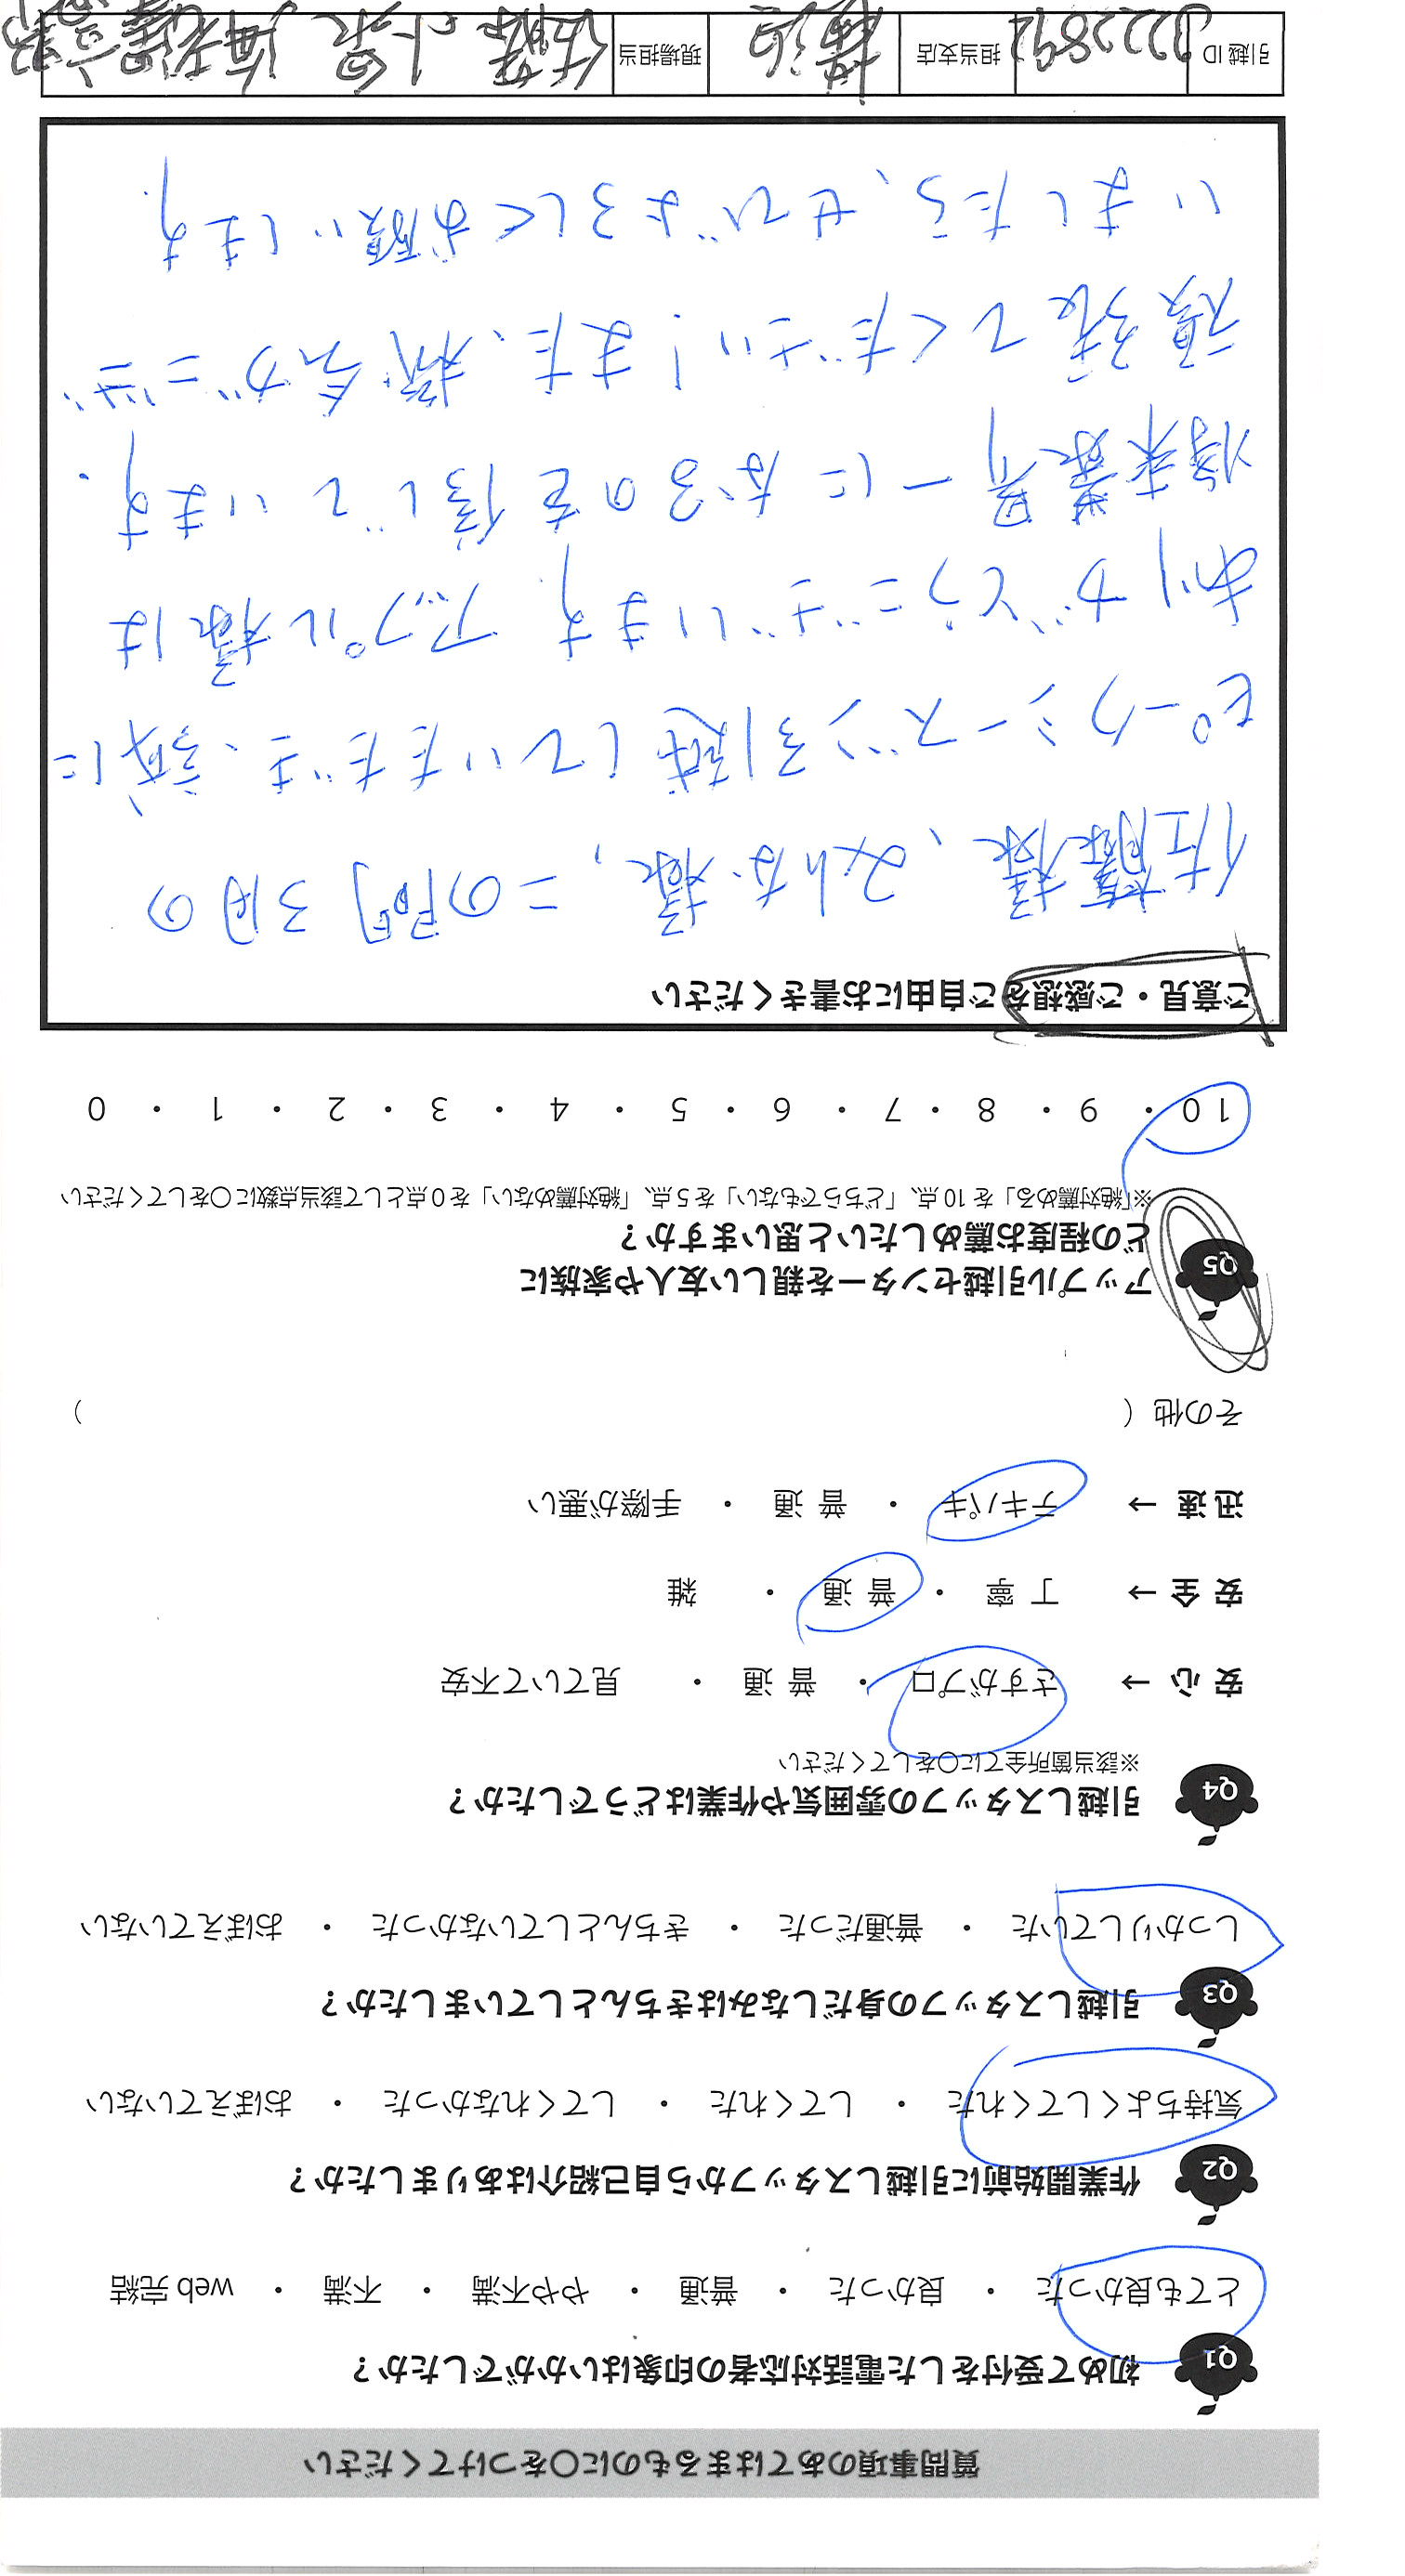 質問事項のあてはまるものに〇をつけてください
Q1 初めて受付をした電話対応者の印象はいかがでしたか？
とても良かった ・ 良かった ・ 普通 ・ やや不満 ・ 不満 ・ web 完結
Q2 作業開始前に引越しスタッフから自己紹介はありましたか？
気持ちよくしてくれた ・ してくれた ・ してくれなかった ・ おぼえていない
Q3 引越しスタッフの身だしなみはきちんとしていましたか？
しっかりしていた ・ 普通だった ・ きちんとしていなかった ・ おぼえていない
Q4 引越しスタッフの雰囲気や作業はどうでしたか？
※該当箇所全てに〇をしてください
安 心 → さすがプロ ・ 普 通 ・ 見ていて不安
安 全 → 丁 寧 ・ 普 通 ・ 雑
迅 速 → テキパキ ・ 普 通 ・ 手際が悪い
その他（ ）
Q5 アップル引越センターを親しい友人や家族に
どの程度お薦めしたいと思いますか？
※「絶対薦める」を 10 点、「どちらでもない」を 5 点、「絶対薦めない」を 0 点として該当点数に〇をしてください
10 ・ 9 ・ 8 ・ 7 ・ 6 ・ 5 ・ 4 ・ 3 ・ 2 ・ 1 ・ 0
ご意見・ご感想をご自由にお書きください
佐藤様、みんな様、この間3月の
ピークシーズン引越していただき、誠に
ありがとうございます。アップル様は
将来業界一になるのを信じています。
頑張てください！また、機会がござ
いましたら、ぜひよろしくお願いします。
引越 ID 3222892 担当支店 横浜 現場担当 佐藤 小泉